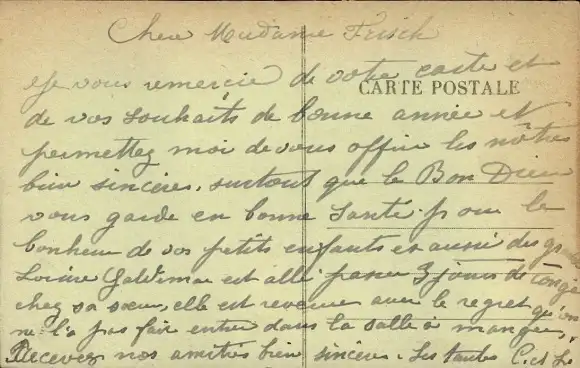 Chere Madame Frisch
Je vous remercie de votre carte et
CARTE POSTALE
de vos souhaits de bonne année et
permettez moi de vous offrir les nôtres
bien sincères, surtout que le Bon Dieu
vous garde en bonne santé pour le
bonheur de vos petits enfants et aussi des grands
est allé passer 3 jours de congé
chez sa sœur, elle est revenue avec le regret qu'on
ne l'a pas fait entrer dans la salle à manger,
Recevez nos amitiés bien sincères. Les tantes C. et